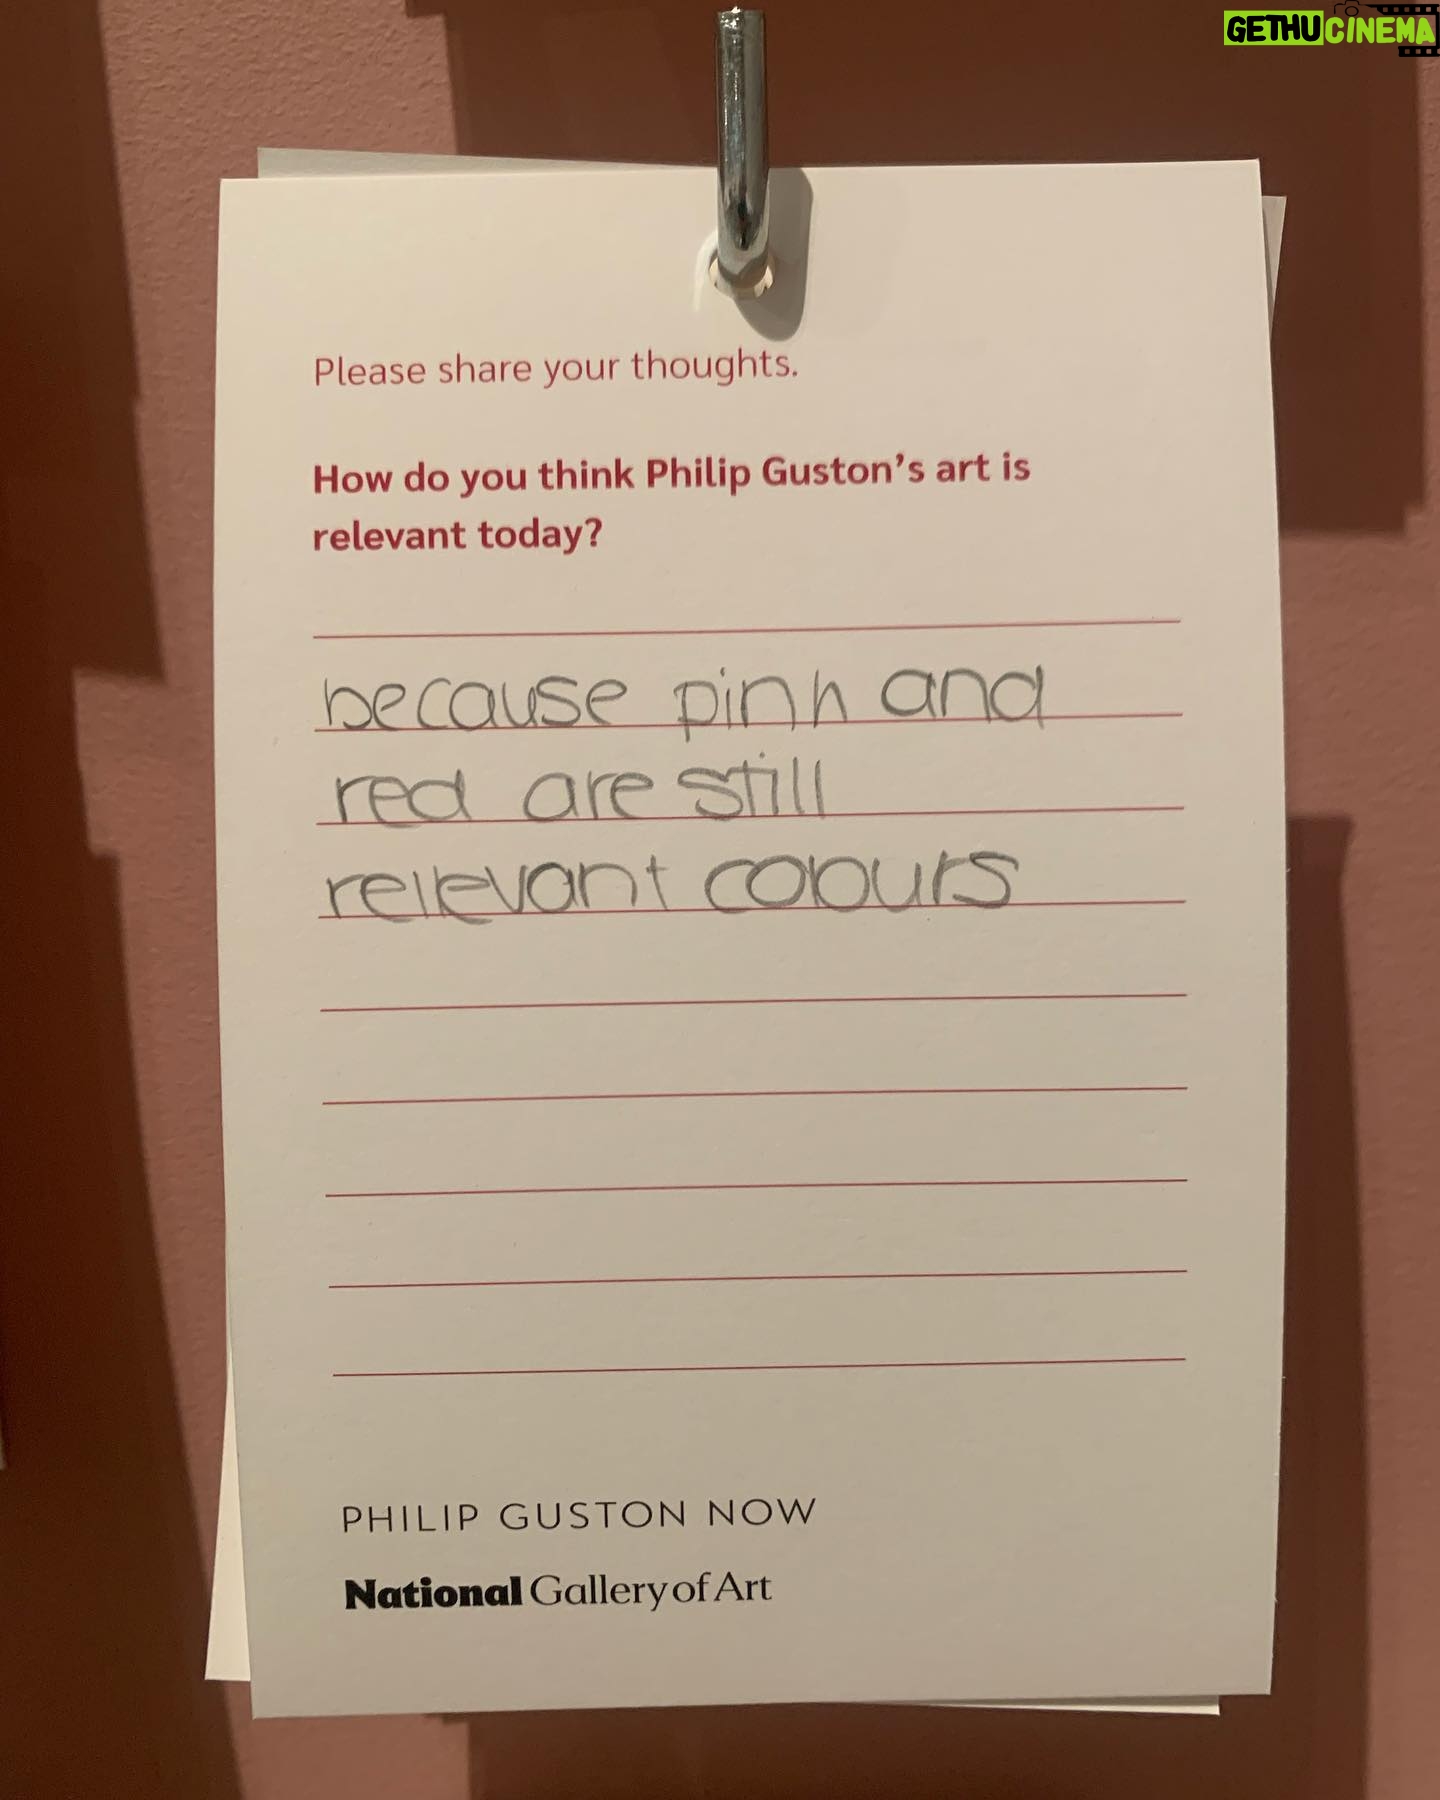 GETHUCINEMA
Please share your thoughts.
How do you think Philip Guston's art is
relevant today?
because pink and
red are still
relevant colours
PHILIP GUSTON NOW
National Gallery of Art